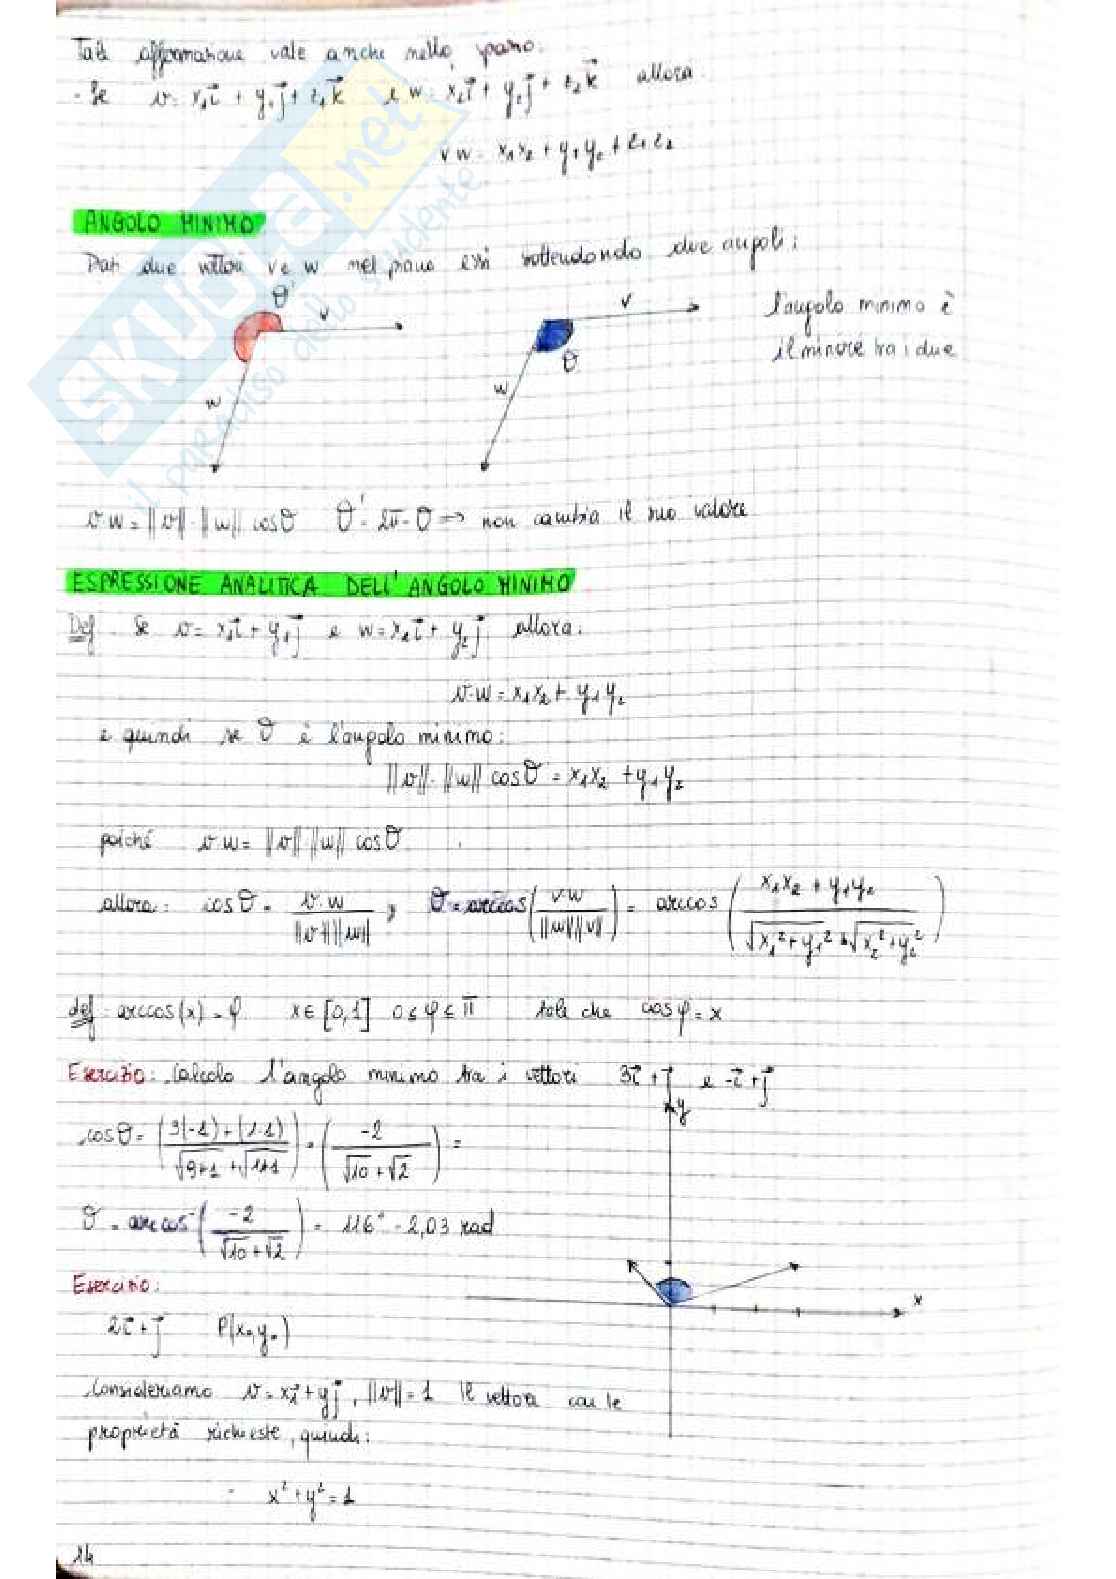 Tale affermazione vale anche nello spazio.
- Se v = x₁i⃗ + y₁j⃗ + z₁k⃗ e w = x₂i⃗ + y₂j⃗ + z₂k⃗ allora
v w = x₁x₂ + y₁y₂ + z₁z₂
ANGOLO MINIMO
Dati due vettori v e w nel piano essi sottendono due angoli:
θ' v w
θ v w
l'angolo minimo è
il minore tra i due
v w = ||v|| · ||w|| cosθ θ' = 2π - θ => non cambia il suo valore
ESPRESSIONE ANALITICA DELL'ANGOLO MINIMO
Def. Se v = x₁i⃗ + y₁j⃗ e w = x₂i⃗ + y₂j⃗ allora:
v·w = x₁x₂ + y₁y₂
e quindi se θ è l'angolo minimo:
||v|| · ||w|| cosθ = x₁x₂ + y₁y₂
poiché v w = ||v|| ||w|| cosθ
allora: cosθ = v·w / ||v|| ||w|| , θ = arccos(v·w / ||w|| ||v||) = arccos(x₁x₂ + y₁y₂ / √x₁²+y₁² √x₂²+y₂²)
def: arccos(x) = φ x ∈ [0,1] 0 ≤ φ ≤ π tale che cosφ = x
Esercizio: Calcolo l'angolo minimo tra i vettori 3i⃗ + j⃗ e -i⃗ + j⃗
cosθ = (3(-1) + (1·1) / √9+1 + √1+1) = (-2 / √10 + √2) =
θ = arccos(-2 / √10 + √2) = 116° - 2,03 rad
y
x
Esercizio:
2i⃗ + j⃗ P(x₀,y₀)
Consideriamo v = xi⃗ + yj⃗, ||v|| = 1 il vettore con le
proprietà richieste, quindi:
x² + y² = 1
14
SKUOLA.net
il paradiso dello studente